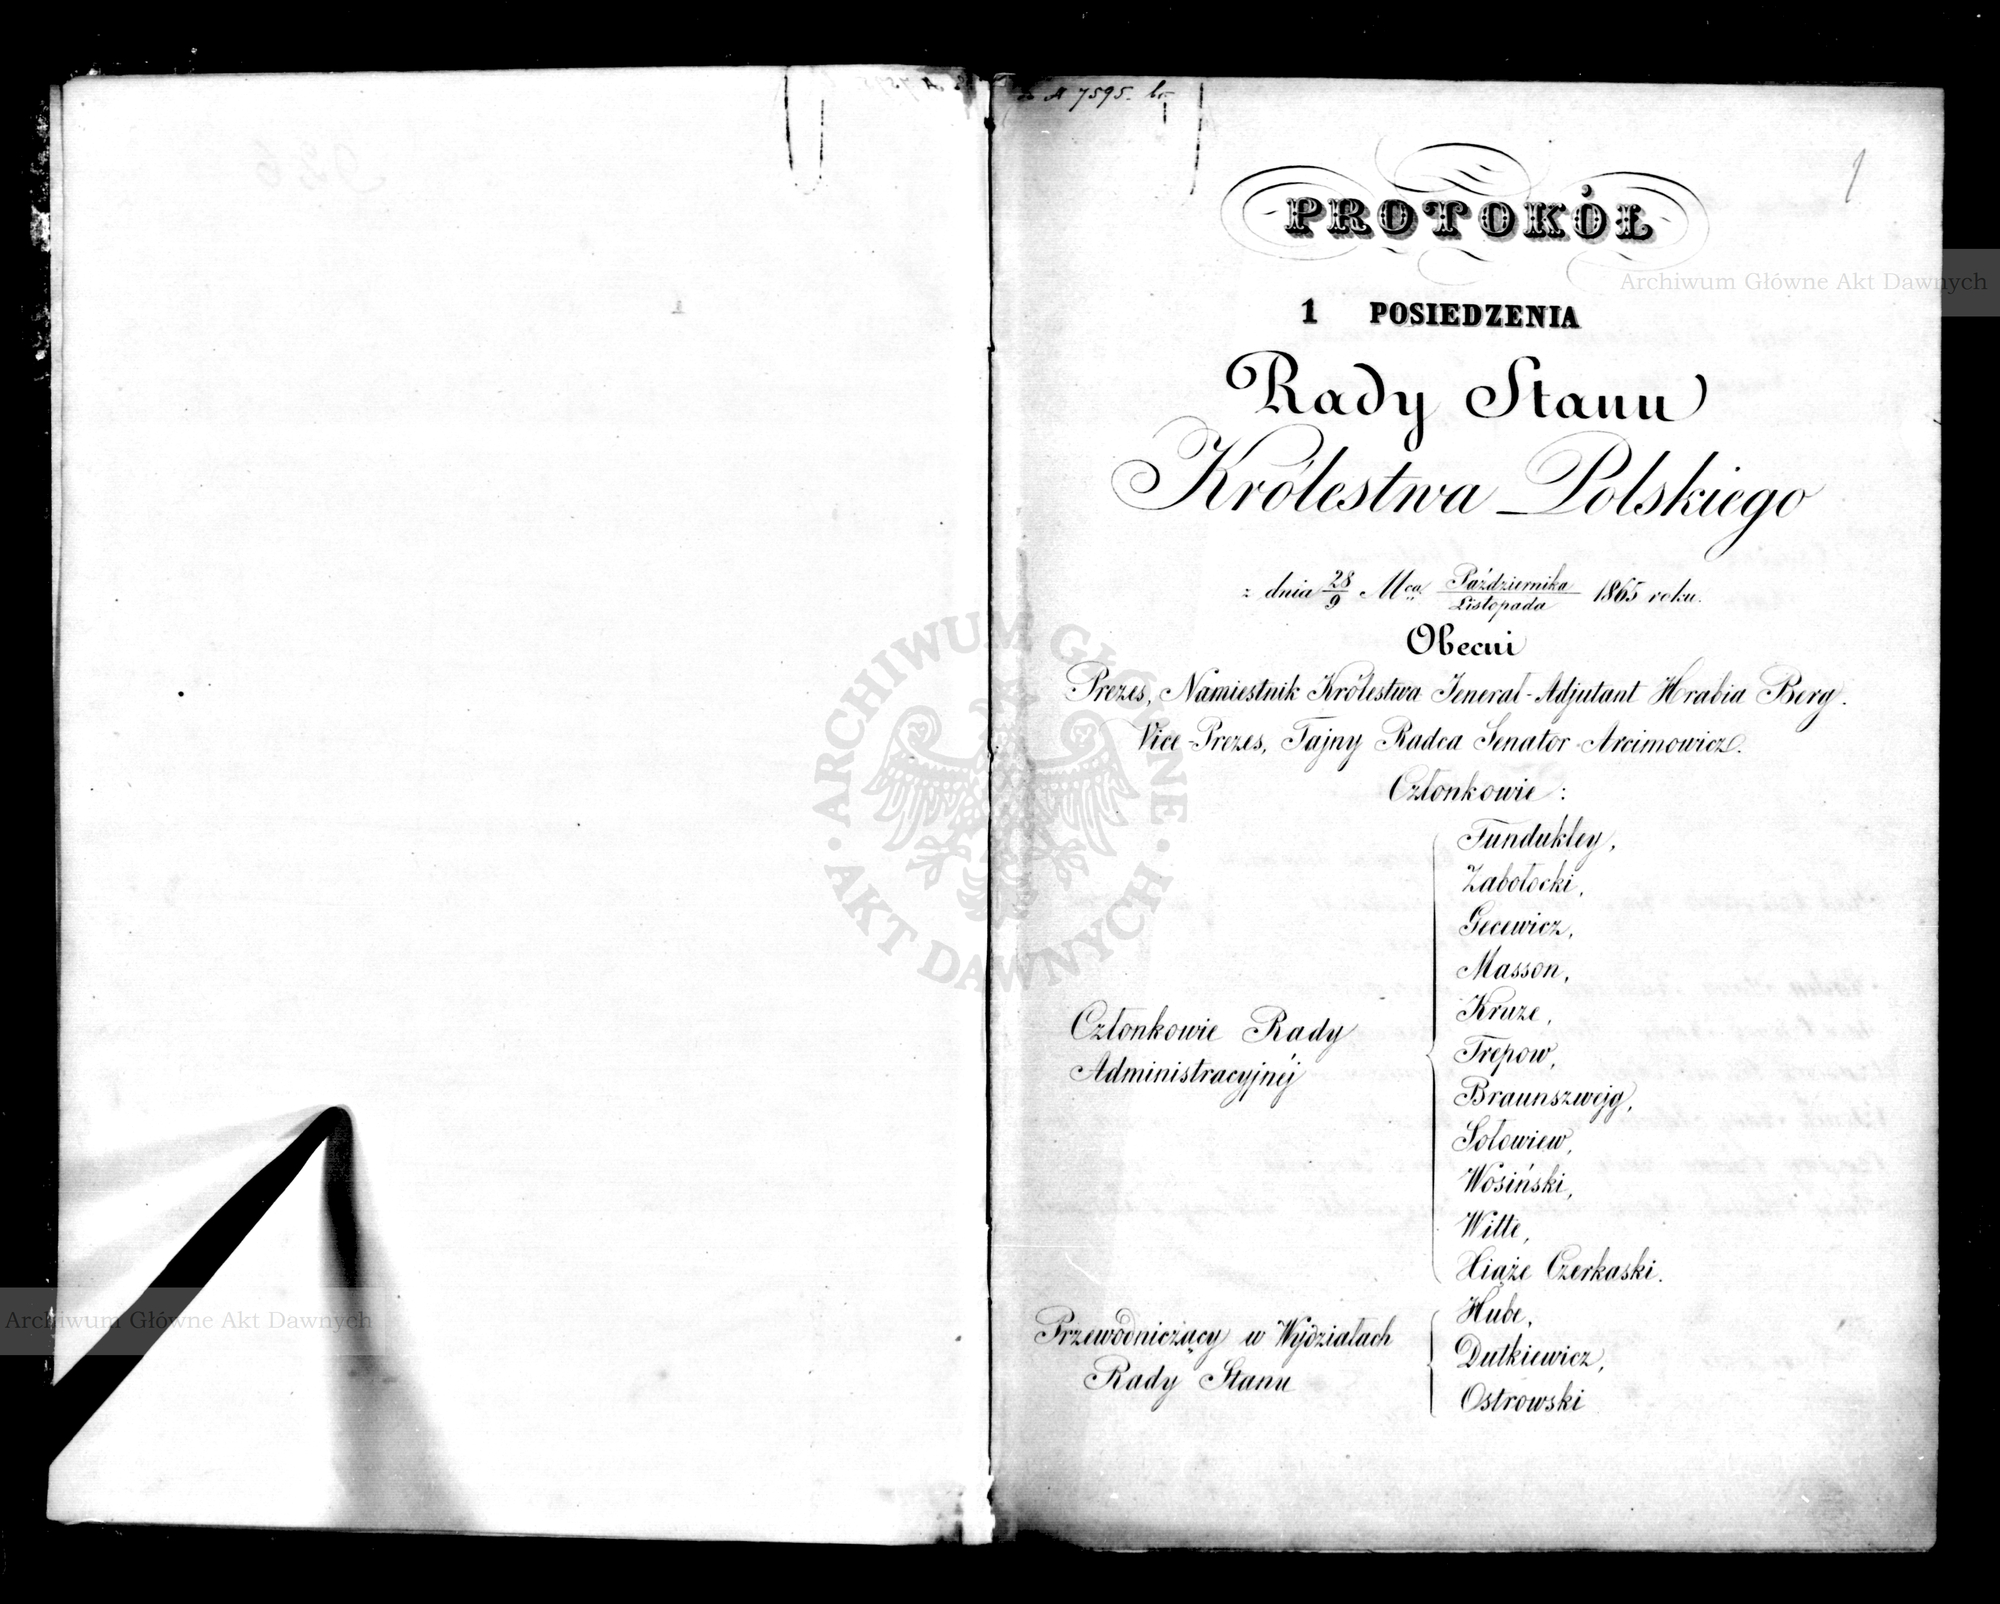 A 7595.
1
PROTOKÓŁ
1 POSIEDZENIA
Rady Stanu
Królestwa Polskiego
z dnia 28/9 Mca Października/Listopada 1865 roku.
Obecni
Prezes, Namiestnik Królestwa Jenerał-Adjutant Hrabia Berg.
Vice-Prezes, Tajny Radca Senator Arcimowicz.
Członkowie:
Członkowie Rady
Administracyjnéj
Fundukley,
Zabołocki,
Gecewicz,
Masson,
Kruze,
Trepow,
Braunszwejg,
Sołowiew,
Wosiński,
Witte,
Xiąże Czerkaski.
Przewodniczący w Wydziałach
Rady Stanu
Hube,
Dutkiewicz,
Ostrowski
Archiwum Główne Akt Dawnych
ARCHIWUM GŁÓWNE
AKT DAWNYCH
Archiwum Główne Akt Dawnych